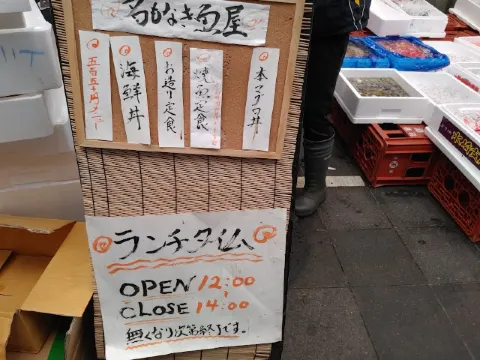 るかなき魚屋
五百五十円メニュー
海鮮丼
お造り定食
焼魚定食
本マグロ丼
ランチタイム
OPEN 12:00
CLOSE 14:00
無くなり次第終了です。